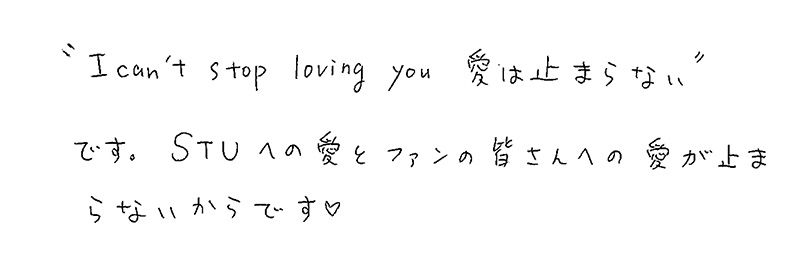 〝I can't stop loving you 愛は止まらない〞
です。STUへの愛とファンの皆さんへの愛が止ま
らないからです♡